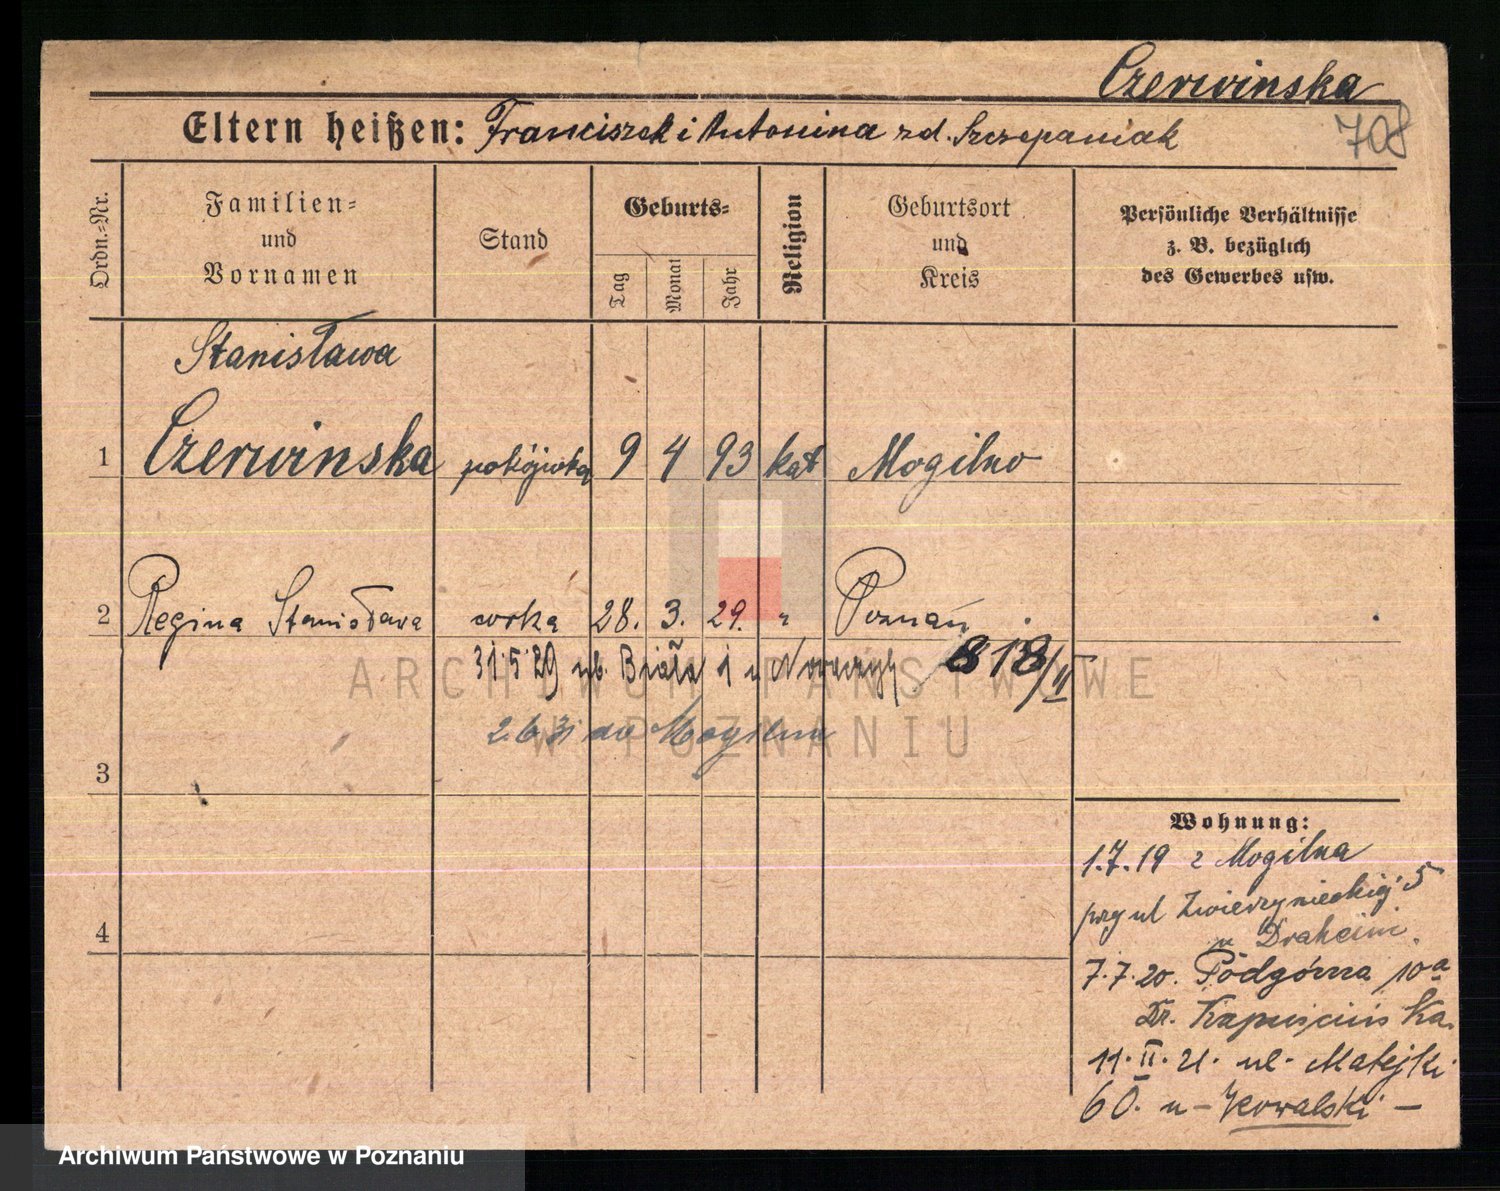 Czerwinska
Eltern heißen: Franciszek i Antonina zd. Szczepaniak
708
Ordn.-Nr.
Familien-
und
Vornamen
Stand
Geburts-
Tag
Monat
Jahr
Religion
Geburtsort
und
Kreis
Persönliche Verhältnisse
z. B. bezüglich
des Gewerbes usw.
Stanisława
1 Czerwinska pokojówka 9 4 93 kat Mogilno
2 Regina Stanisława corka 28. 3. 29. " Poznań
31.5.29 ub. Biała 1 u 818/II
2.6.31 do Mogilna
3
4
Wohnung:
1.7.19 z Mogilna
przy ul Zwierzynieckiej 5
u Draheim
7.7.20. Podgórna 10a
Dr. Kapuścińska
11.II.21. ul. Matejki
60. u - Kowalski -
ARCHIWUM PAŃSTWOWE
W POZNANIU
Archiwum Państwowe w Poznaniu